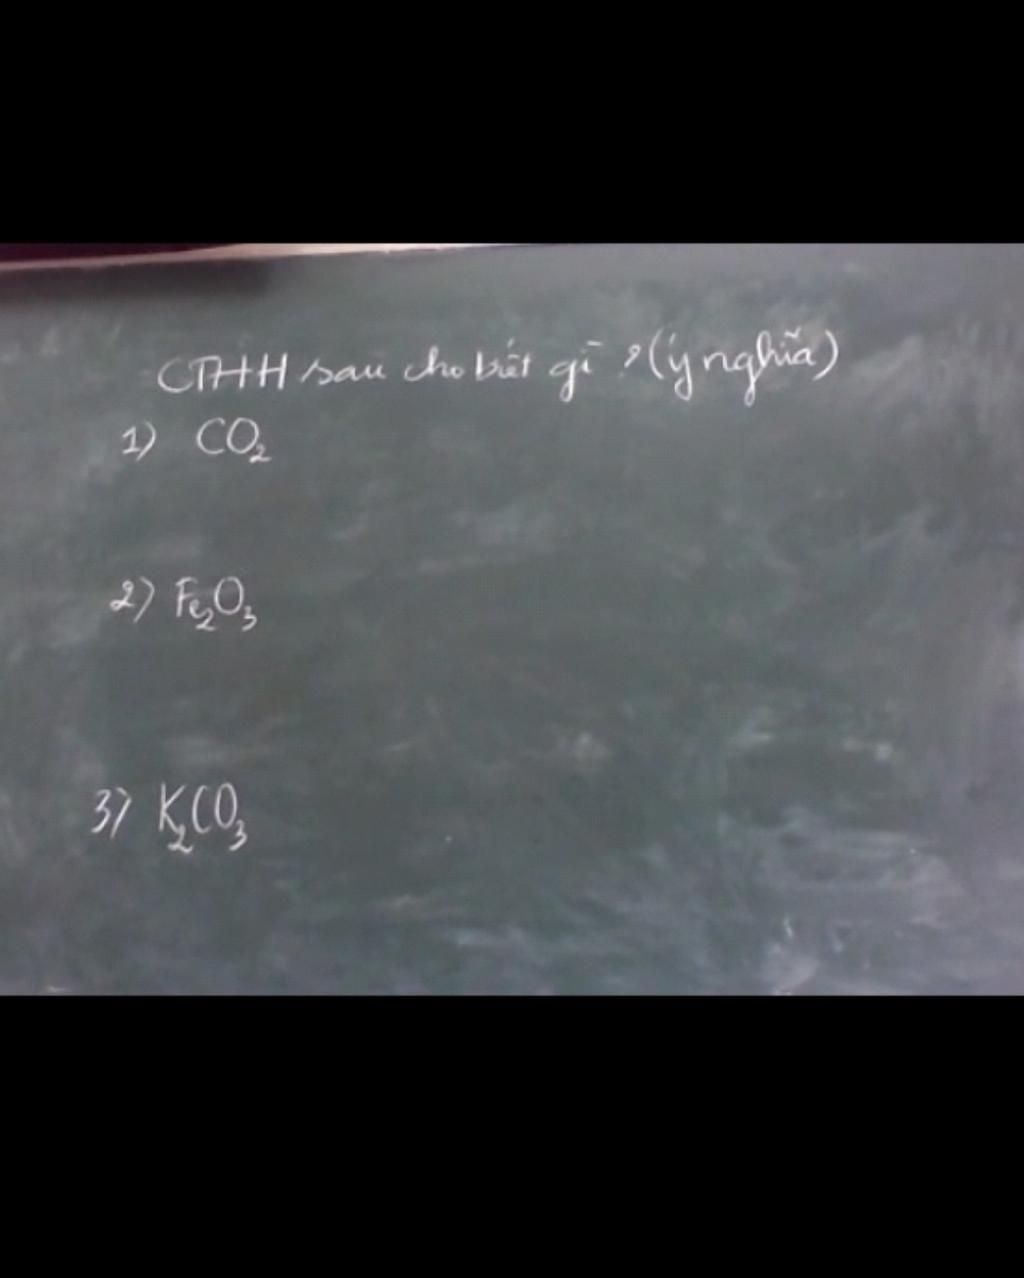 CTHH sau cho biết gì ? (ý nghĩa)
1) CO₂
2) Fe₂O₃
3) K₂CO₃